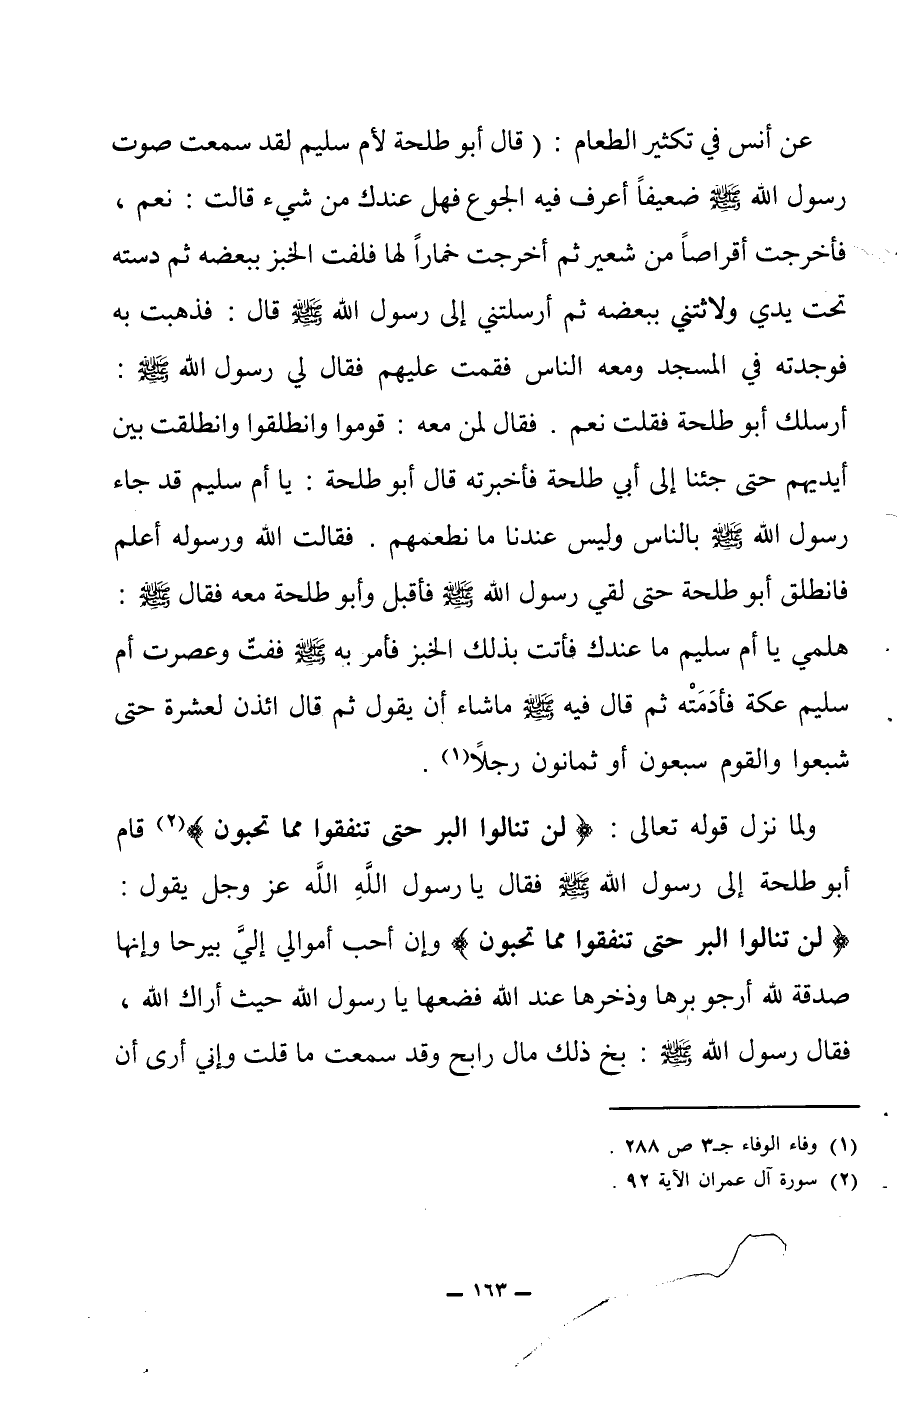 عن أنس في تكثير الطعام : ( قال أبو طلحة لأم سليم لقد سمعت صوت
رسول الله ﷺ ضعيفاً أعرف فيه الجوع فهل عندك من شيء قالت : نعم ،
فأخرجت أقراصاً من شعير ثم أخرجت خماراً لها فلفت الخبز ببعضه ثم دسته
تحت يدي ولاثتني ببعضه ثم أرسلتني إلى رسول الله ﷺ قال : فذهبت به
فوجدته في المسجد ومعه الناس فقمت عليهم فقال لي رسول الله ﷺ :
أرسلك أبو طلحة فقلت نعم . فقال لمن معه : قوموا وانطلقوا وانطلقت بين
أيديهم حتى جئنا إلى أبي طلحة فأخبرته قال أبو طلحة : يا أم سليم قد جاء
رسول الله ﷺ بالناس وليس عندنا ما نطعمهم . فقالت الله ورسوله أعلم
فانطلق أبو طلحة حتى لقي رسول الله ﷺ فأقبل وأبو طلحة معه فقال ﷺ :
هلمي يا أم سليم ما عندك فأتت بذلك الخبز فأمر به ﷺ ففتّ وعصرت أم
سليم عكة فأدَمَتْه ثم قال فيه ﷺ ماشاء أن يقول ثم قال ائذن لعشرة حتى
شبعوا والقوم سبعون أو ثمانون رجلاً(١) .
ولما نزل قوله تعالى : ﴿ لن تنالوا البر حتى تنفقوا مما تحبون ﴾(٢) قام
أبو طلحة إلى رسول الله ﷺ فقال يا رسول اللَّهِ اللَّه عز وجل يقول :
﴿ لن تنالوا البر حتى تنفقوا مما تحبون ﴾ وإن أحب أموالي إليَّ بيرحا وإنها
صدقة لله أرجو برها وذخرها عند الله فضعها يا رسول الله حيث أراك الله ،
فقال رسول الله ﷺ : بخ ذلك مال رابح وقد سمعت ما قلت وإني أرى أن
(١) وفاء الوفاء جـ٣ ص ٢٨٨ .
(٢) سورة آل عمران الآية ٩٢ .
— ١٦٣ —